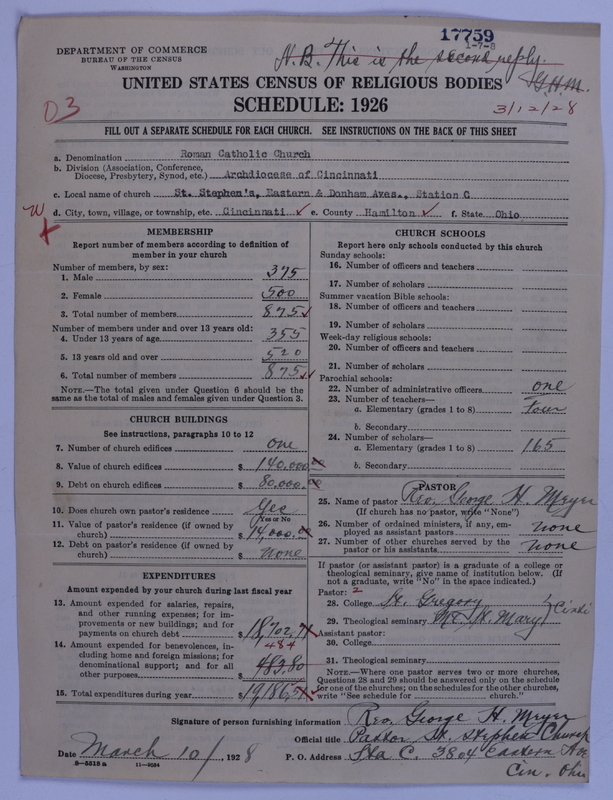 17759
1-7-8
DEPARTMENT OF COMMERCE
BUREAU OF THE CENSUS
WASHINGTON
N.B. This is the second reply.
G.H.M.
UNITED STATES CENSUS OF RELIGIOUS BODIES
SCHEDULE: 1926
D3
3/12/28
FILL OUT A SEPARATE SCHEDULE FOR EACH CHURCH. SEE INSTRUCTIONS ON THE BACK OF THIS SHEET
a. Denomination Roman Catholic Church
b. Division (Association, Conference, Diocese, Presbytery, Synod, etc.) Archdiocese of Cincinnati
c. Local name of church St. Stephen's, Eastern & Donham Aves., Station C
d. City, town, village, or township, etc. Cincinnati e. County Hamilton f. State Ohio
MEMBERSHIP
Report number of members according to definition of
member in your church
Number of members, by sex:
1. Male 375
2. Female 500
3. Total number of members 875
Number of members under and over 13 years old:
4. Under 13 years of age 355
5. 13 years old and over 520
6. Total number of members 875
NOTE.—The total given under Question 6 should be
same as the total of males and females given under Question 3.
CHURCH BUILDINGS
See instructions, paragraphs 10 to 12
7. Number of church edifices one
8. Value of church edifices $140,000.00
9. Debt on church edifices $80,000.00
10. Does church own pastor's residence Yes
Yes or No
11. Value of pastor's residence (if owned by
church) $14,000.00
12. Debt on pastor's residence (if owned by
church) $ none
EXPENDITURES
Amount expended by your church during last fiscal year
13. Amount expended for salaries, repairs,
and other running expenses; for im-
provements or new buildings; and for
payments on church debt $18,702.
484
14. Amount expended for benevolences, in-
cluding home and foreign missions; for
denominational support; and for all
other purposes $483.80
15. Total expenditures during year $19,186.
CHURCH SCHOOLS
Report here only schools conducted by this church
Sunday schools:
16. Number of officers and teachers
17. Number of scholars
Summer vacation Bible schools:
18. Number of officers and teachers
19. Number of scholars
Week-day religious schools:
20. Number of officers and teachers
21. Number of scholars
Parochial schools:
22. Number of administrative officers one
23. Number of teachers—
a. Elementary (grades 1 to 8) Four
b. Secondary
24. Number of scholars—
a. Elementary (grades 1 to 8) 165
b. Secondary
PASTOR
25. Name of pastor Rev. George H. Meyer
(If church has no pastor, write "None")
26. Number of ordained ministers, if any, em-
ployed as assistant pastors none
27. Number of other churches served by the
pastor or his assistants none
If pastor (or assistant pastor) is a graduate of a college or
theological seminary, give name of institution below. (If
not a graduate, write "No" in the space indicated.)
Pastor: 2
28. College St. Gregory
29. Theological seminary Mt. St. Mary
Assistant pastor:
30. College
31. Theological seminary
NOTE.—Where one pastor serves two or more churches,
Questions 28 and 29 should be answered only on the schedule
for one of the churches; on the schedules for the other churches,
write "See schedule for church."
Signature of person furnishing information Rev. George H. Meyer
Official title Pastor St. Stephen Church
Date March 10/, 1928 P. O. Address Sta C. 3804 Eastern Ave
8-5518 a 11-9054
Cin. Ohio